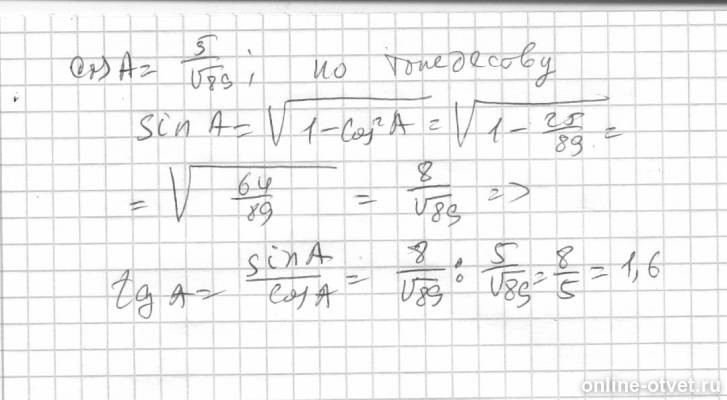 cos A = 5/√89; по
sin A = √(1 - cos²A) = √(1 - 25/89) =
= √(64/89) = 8/√89 =>
tg A = sin A/cos A = 8/√89 : 5/√89 = 8/5 = 1,6
online-otvet.ru